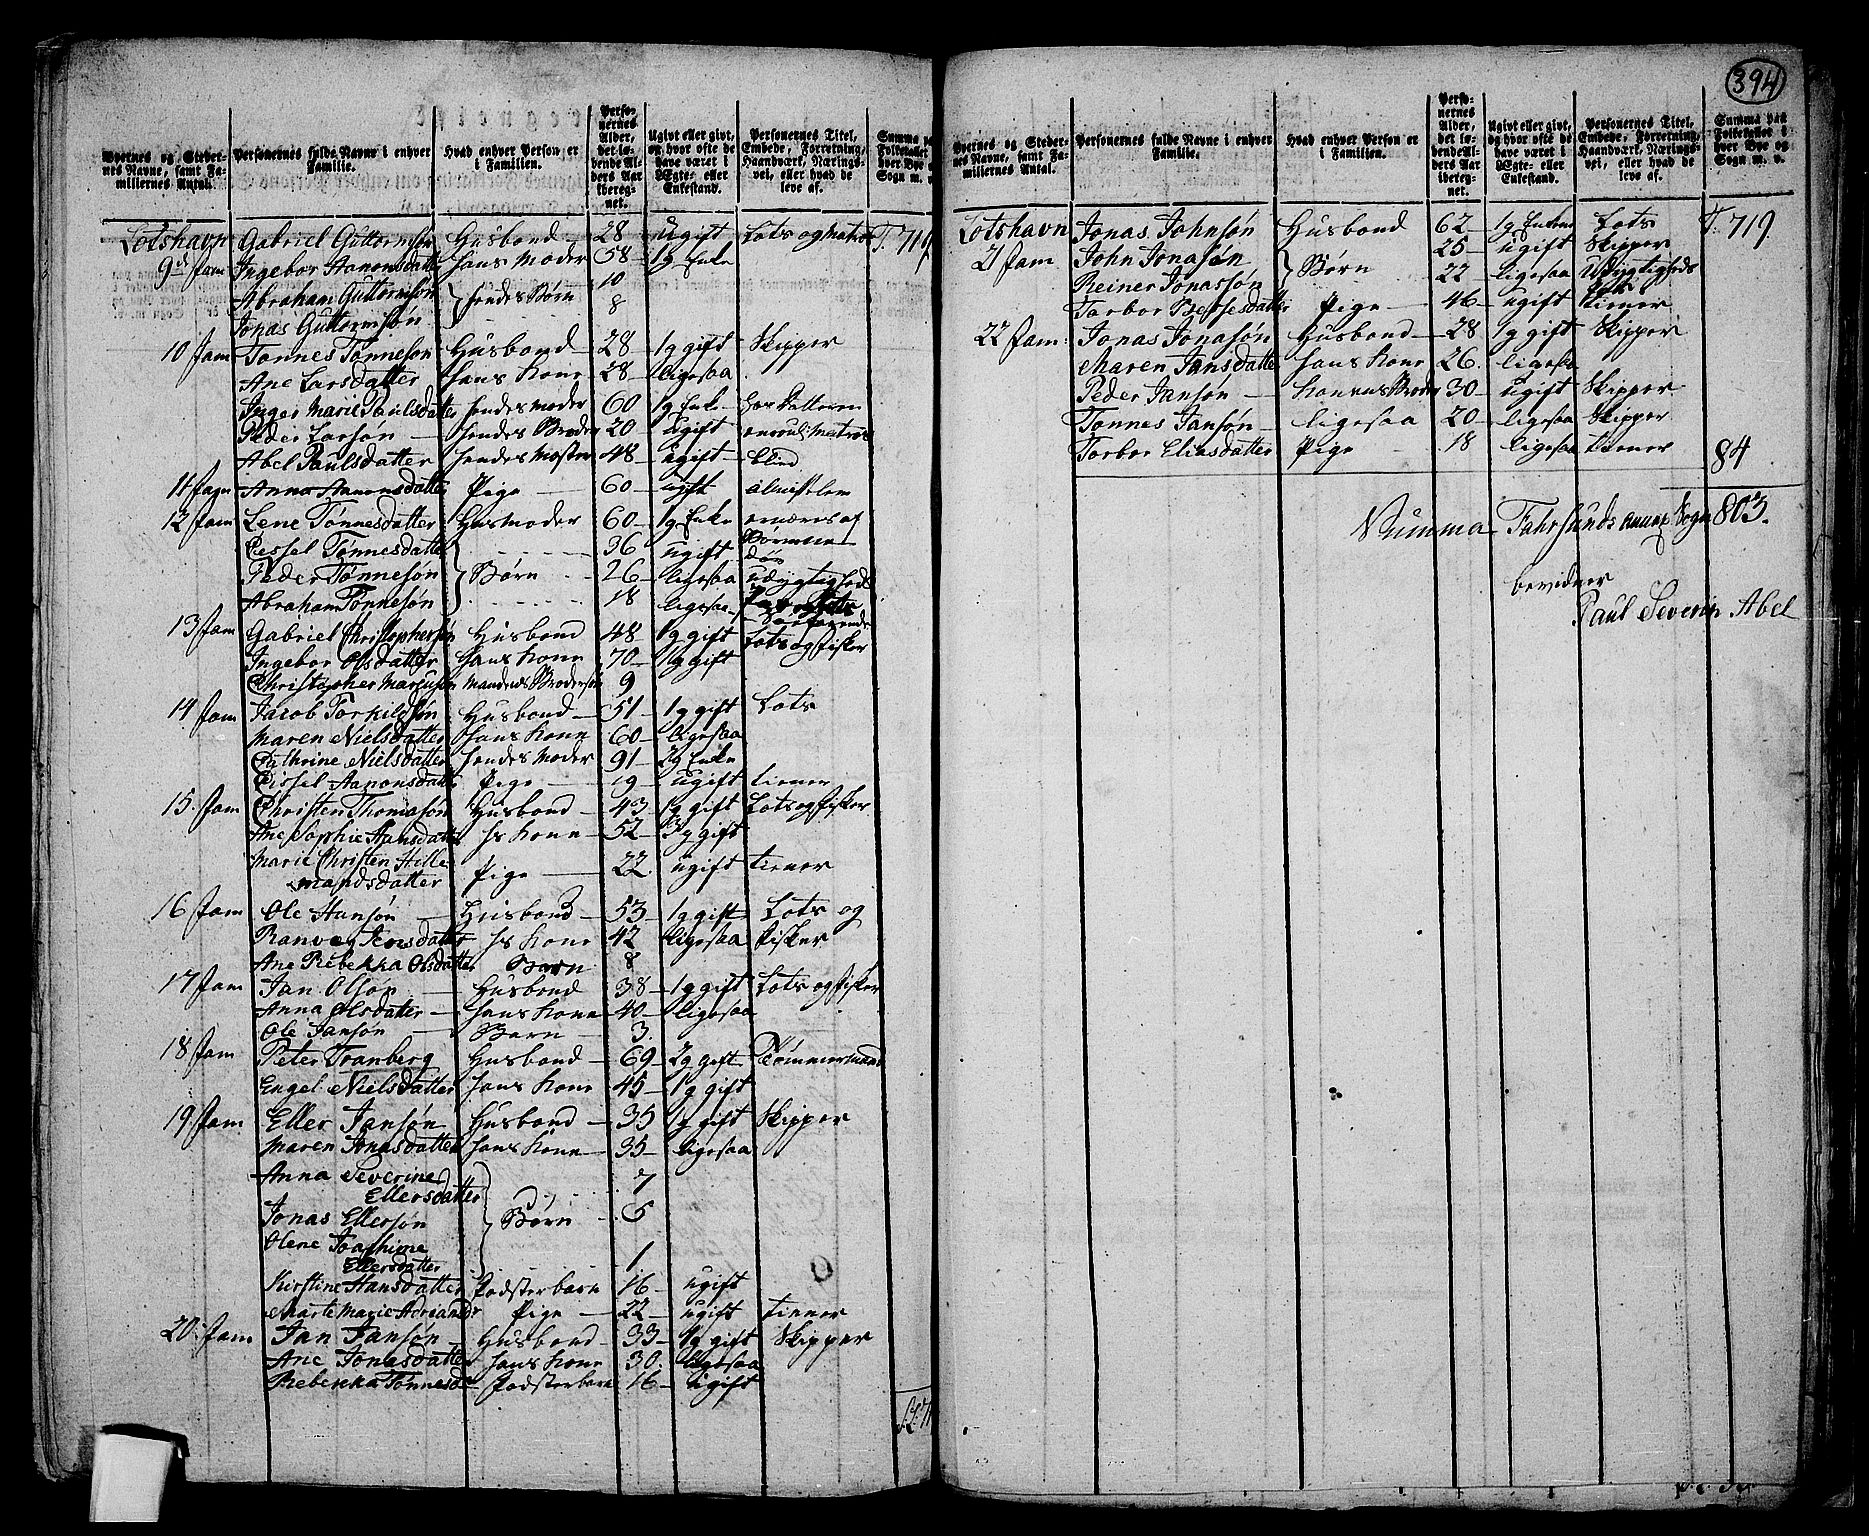 394
Byernes og Stedernes Navne, samt Familiernes Antal. | Personernes fulde Navne i enhver Familie. | Hvad enhver Person er i Familien. | Personernes Alder, det løbende Alders Aar iberegnet. | Ugivt eller givt, og hvor ofte de have været i Ægte- eller Enkestand. | Personernes Titel, Embede, Forretning, Haandværk, Næringsvei, eller hvad de leve af. | Summa paa Folketallet i hver Bye og Sogn m. v.
Lotshavn | Gabriel Guttormsøn | Husbond | 28 | ugift | Lots og Matros | T. 719
9de fam | Ingebor Aanonsdatter | hans Moder | 58 | 1g Enke
Abraham Guttormsøn | hendes Børn | 10
Jonas Guttormsøn | 8
10 fam | Tønnes Tønnesøn | Husbond | 28 | 1g gift | Skipper
Ane Larsdatter | hans Kone | 28 | ligesaa
Inger Marie Paulsdatter | hendes Moder | 60 | 1g Enke | hos Datteren
Peder Larsøn | hendes Broder | 20 | ugift | Matros
Abel Paulsdatter | hendes Moster | 48 | ugift | blind
11 fam | Anna Aanonsdatter | Pige | 60 | ugift | almislem
12 fam | Lene Tønnesdatter | Husmoder | 60 | 1g Enke | ernæres af
Sessel Tønnesdatter | 36 | ugift | Børnene
Peder Tønnesøn | Børn | 26 | ligesaa | udygtigheds
Abraham Tønnesøn | 18 | ligesaa
13 fam | Gabriel Christophersøn | Husbond | 48 | 1g gift | Lots og fisker
Ingebor Olsdatter | hans Kone | 70 | 1g gift
Christopher Marcusøn | Mandens Brodersøn | 9
14 fam | Jacob Torkildsøn | Husbond | 51 | 1g gift | Lots
Maren Nielsdatter | hans Kone | 60 | ligesaa
Cathrine Nielsdatter | hendes Moder | 91 | 2g Enke
Sissel Aanonsdatter | Pige | 19 | ugift | tiener
15 fam | Christen Thomasøn | Husbond | 43 | 1g gift | Lots og fisker
Ane Sophie Hansdatter | hs Kone | 52 | 3g gift
Marie Christen Hille
mandsdatter | Pige | 22 | ugift | tiener
16 fam | Ole Hansøn | Husbond | 53 | 1g gift | Lots og
Ranveg Jensdatter | hs Kone | 42 | ligesaa | fisker
Ane Rebekka Olsdatter | Barn | 8
17 fam | Jan Olsøn | Husbond | 38 | 1g gift | Lots og fisker
Anna Olsdatter | hans Kone | 40 | ligesaa
Ole Jansøn | Barn | 3
18 fam | Peter Tranberg | Husbond | 69 | 2g gift | Tømmermand
Engel Nielsdatter | hans Kone | 45 | 1g gift
19 fam | Eller Jansøn | Husbond | 35 | 1g gift | Skipper
Maren Jonasdatter | hans Kone | 35 | ligesaa
Anna Severine
Ellersdatter | 7
Jonas Ellersøn | Børn | 5
Olene Joachime
Ellersdatter | 1
Kirstine Hansdatter | Podsterbarn | 16 | ugift
Marte Marie Adriansdr | Pige | 22 | ugift | tiener
20 fam | Jan Jansøn | Husbond | 33 | 1g gift | Skipper
Ane Jonasdatter | hans Kone | 30 | ligesaa
Rebekka Tønnesd | Podsterbarn | 16 | ugift
Byernes og Stedernes Navne, samt Familiernes Antal. | Personernes fulde Navne i enhver Familie. | Hvad enhver Person er i Familien. | Personernes Alder, det løbende Alders Aar iberegnet. | Ugivt eller givt, og hvor ofte de have været i Ægte- eller Enkestand. | Personernes Titel, Embede, Forretning, Haandværk, Næringsvei, eller hvad de leve af. | Summa paa Folketallet i hver Bye og Sogn m. v.
Lotshavn | Jonas Johnsøn | Husbond | 62 | 1g Enkem | Lots | T. 719
21 fam | John Jonasøn | Børn | 25 | ugift | Skipper
Reiner Jonassøn | 22 | ligesaa | udygtigheds
Torbor Berjesdatter | Pige | 46 | ugift | tiener
22 fam | Jonas Jonasøn | Husbond | 28 | 1g gift | Skipper
Maren Jansdatter | hans Kone | 26 | ligesaa
Peder Jansøn | Konens Broder | 30 | ugift | Skipper
Tønnes Jansøn | ligesaa | 20 | ligesaa | Skipper
Torbor Eliasdatter | Pige | 18 | ligesaa | tiener | 84
Summa Fahrsunds annex Sogn 803.
bevidner
Paul Severin Abel